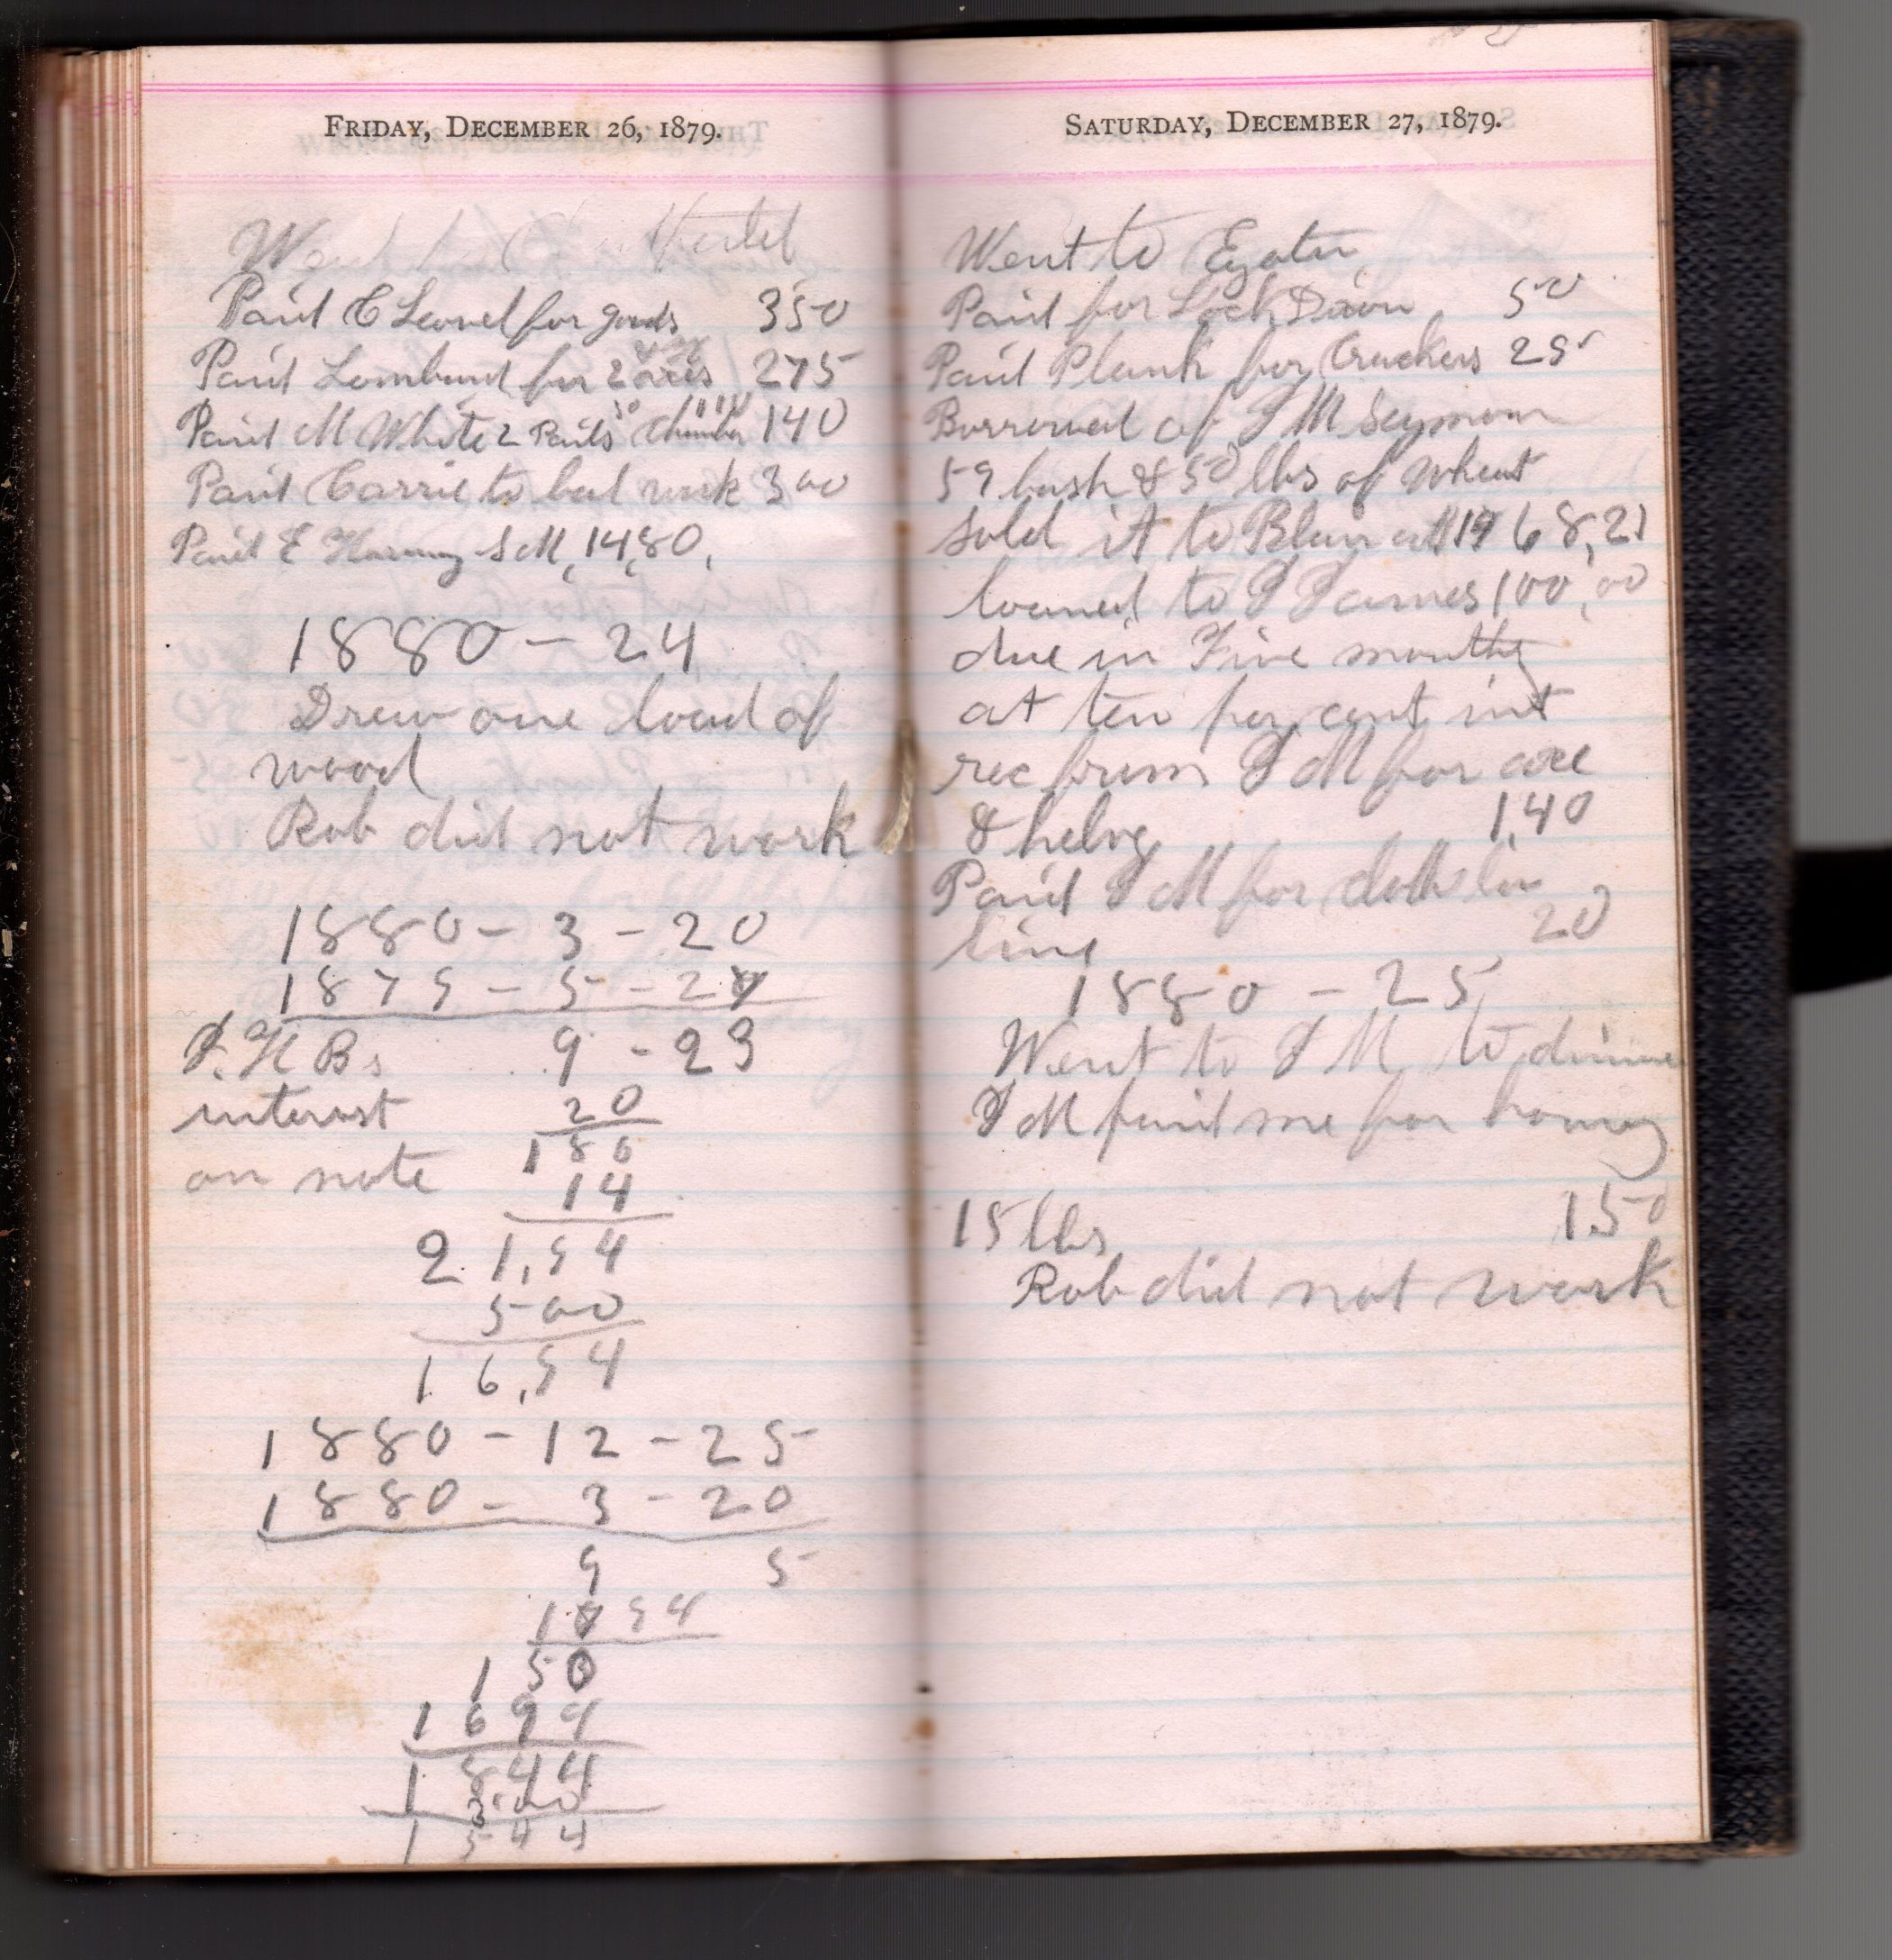 FRIDAY, DECEMBER 26, 1879.
Went to
Paid C for goods 350
Paid for 2 axes 275
Paid M White 2 Pails 140
Paid Carrie to bal work 300
Paid E S M, 14,80,
1880 - 24
Drew one load of
wood
Rob did not work
1880 - 3 - 20
1879 - 5 - 27
H B s 9 - 23
interest 20
on note 186
14
2 1,54
500
1 6,54
1880 - 12 - 25
1880 - 3 - 20
9 5
54
1 50
1 6 9 4
1 8 4 4
3 00
1 5 4 4
SATURDAY, DECEMBER 27, 1879.
Went to Eaton
Paid for 50
Paid Plank for Crackers 25
Borrowed of S M Seymour
59 bush & 50 lbs of wheat
sold it to 68,21
loaned to 100,00
due in Five months
at ten per cent int
rec from S M for axe
& helve 1,40
Paid S M for
line 20
1880 - 25
Went to S M to dinner
S M paid me for honey
15 lbs 1.50
Rob did not work